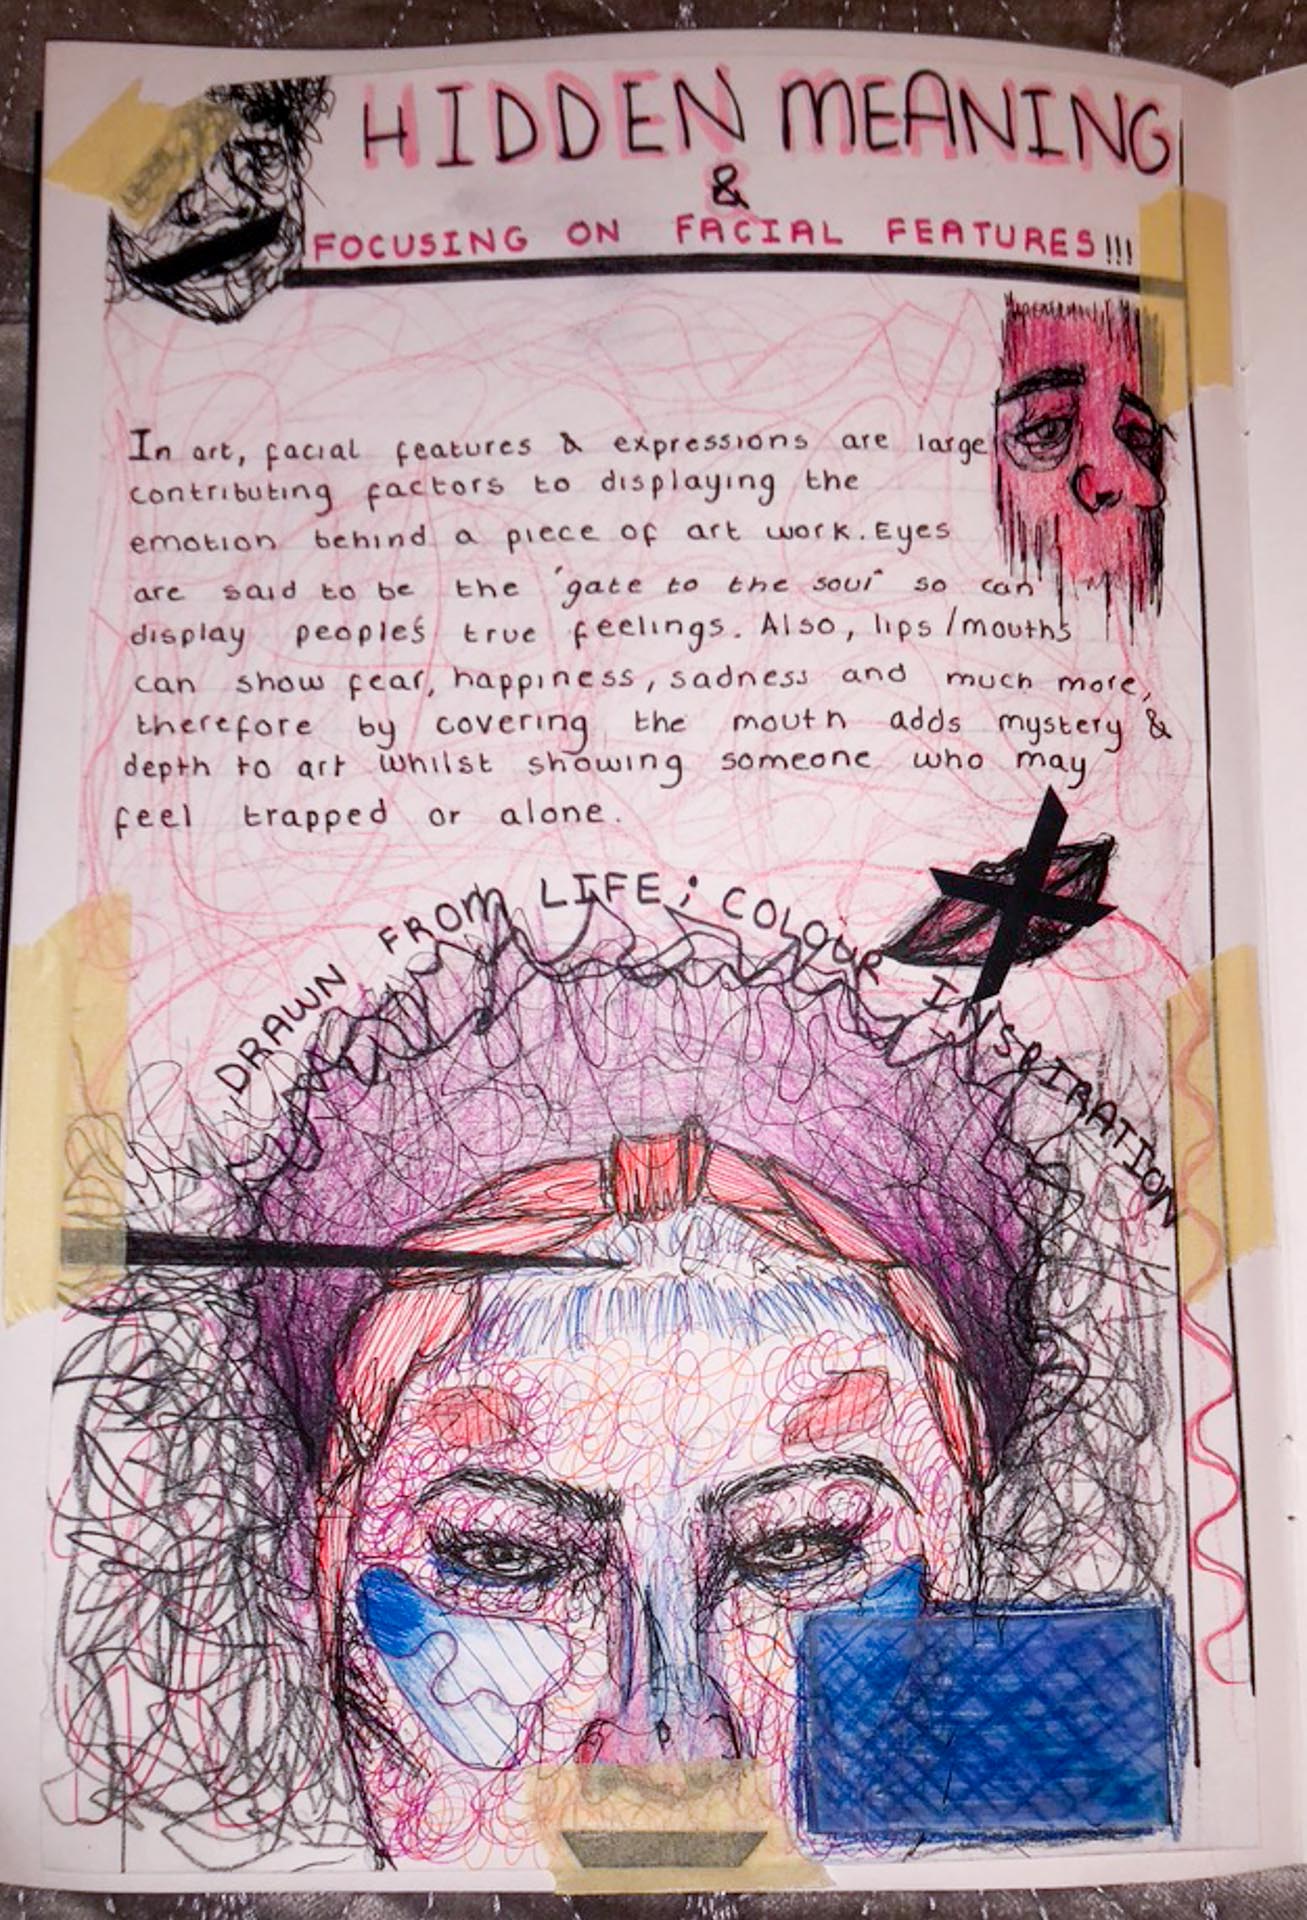 HIDDEN MEANING
&
FOCUSING ON FACIAL FEATURES!!!
In art, facial features & expressions are large
contributing factors to displaying the
emotion behind a piece of art work. Eyes
are said to be the 'gate to the soul' so can
display people's true feelings. Also, lips/mouths
can show fear, happiness, sadness and much more,
therefore by covering the mouth adds mystery &
depth to art whilst showing someone who may
feel trapped or alone.
DRAWN FROM LIFE; COLOUR INSPIRATION